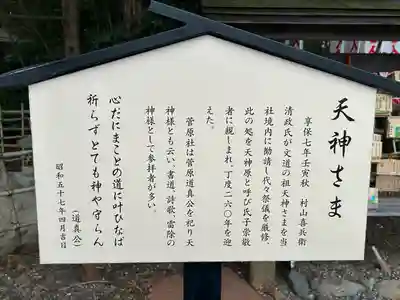 天神さま
享保七年壬寅秋　村山喜兵衛
清政氏が文道の祖天神さまを当
社境内に勧請し代々祭儀を厳修、
此の処を天神原と呼び氏子崇敬
者に親しまれ、丁度二六〇年を迎
えた。
菅原社は菅原道真公を祀り天
神様とも云い、書道、詩歌、雷除の
神様として参拝者が多い。
心だにまことの道に叶ひなば
祈らずとても神や守らん
（道真公）
昭和五十七年四月吉日